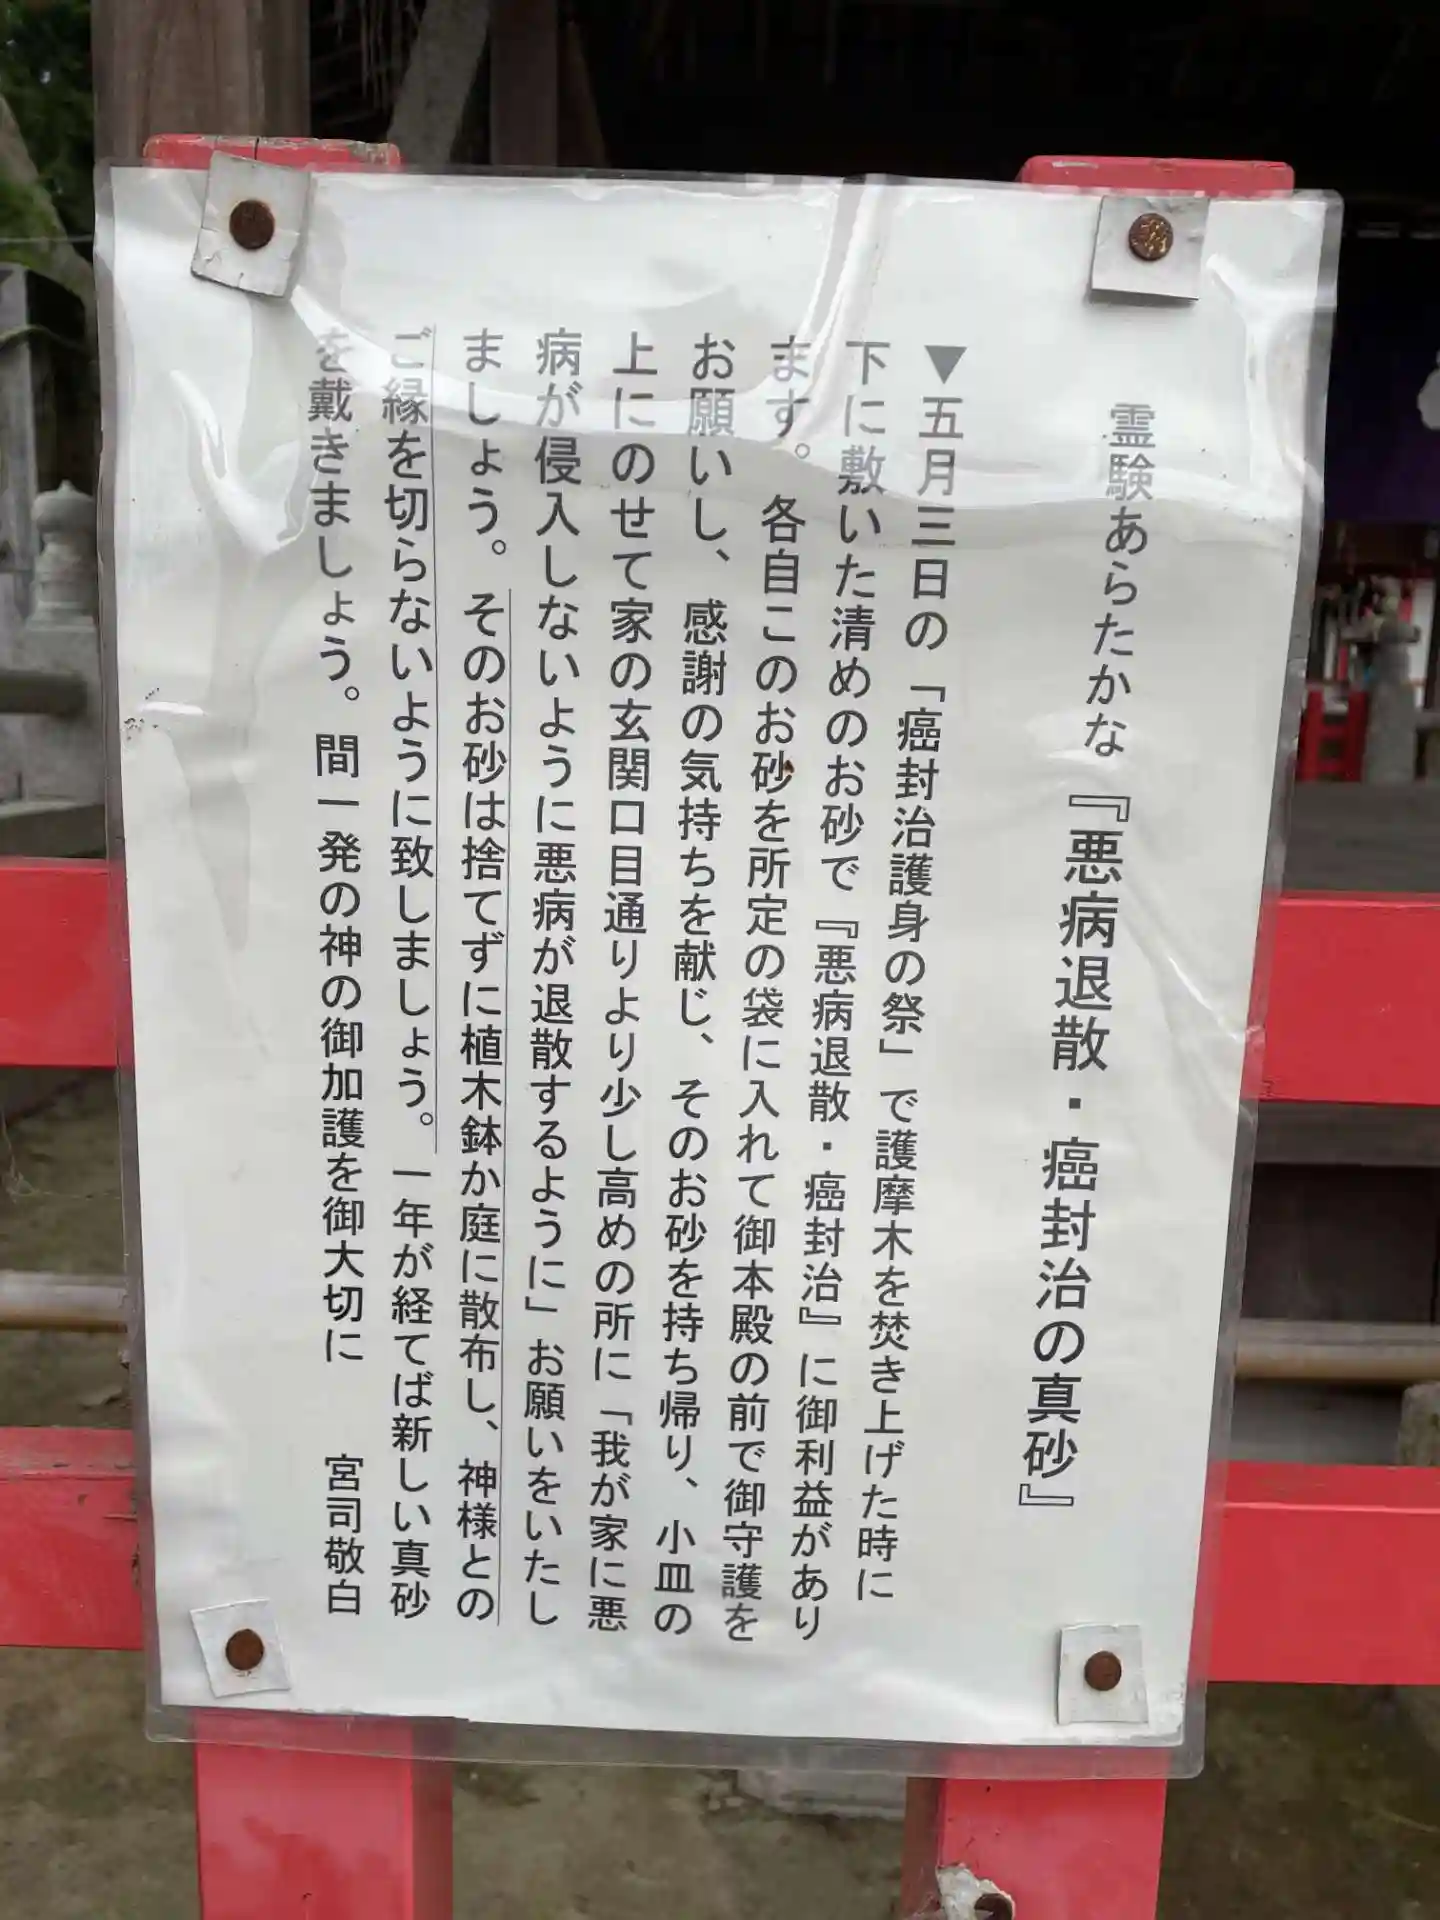 霊験あらたかな『悪病退散・癌封治の真砂』
▼五月三日の「癌封治護身の祭」で護摩木を焚き上げた時に
下に敷いた清めのお砂で『悪病退散・癌封治』に御利益があり
ます。各自このお砂を所定の袋に入れて御本殿の前で御守護を
お願いし、感謝の気持ちを献じ、そのお砂を持ち帰り、小皿の
上にのせて家の玄関口目通りより少し高めの所に「我が家に悪
病が侵入しないように悪病が退散するように」お願いをいたし
ましょう。そのお砂は捨てずに植木鉢か庭に散布し、神様との
ご縁を切らないように致しましょう。一年が経てば新しい真砂
を戴きましょう。間一発の神の御加護を御大切に　宮司敬白